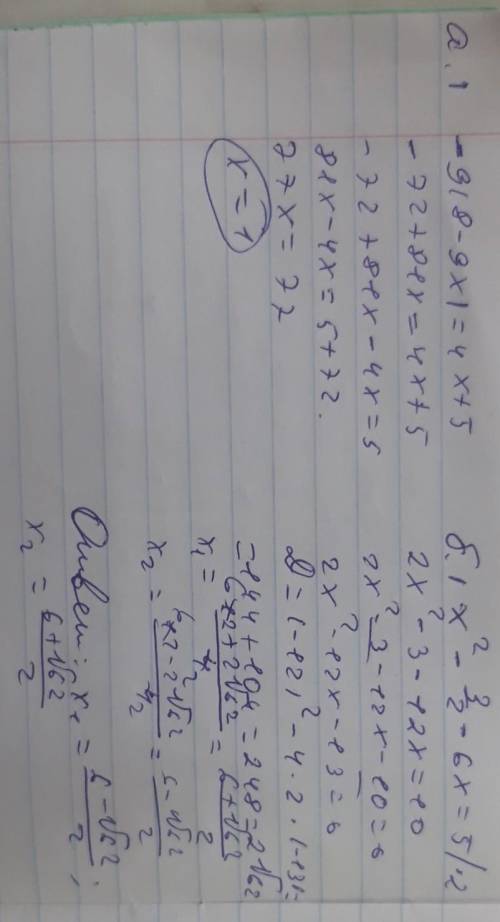 а.) -9(8-9x)=4x+5
-72+81x=4x+5
-72+81x-4x=5
81x-4x=5+72.
77x=77
x=1
б.) x²-3/2-6x=5/·2
2x²-3-12x=10
2x²-3-12x-10=0
2x²-12x-13=0
D=(-12)²-4·2·(-13)=
=144+104=248=2√62
x₁=
x₂=
Ответ: x₁=(6-√62)/2;
x₂=(6+√62)/2